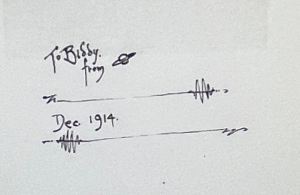 To Bibby.
from
Dec. 1914.